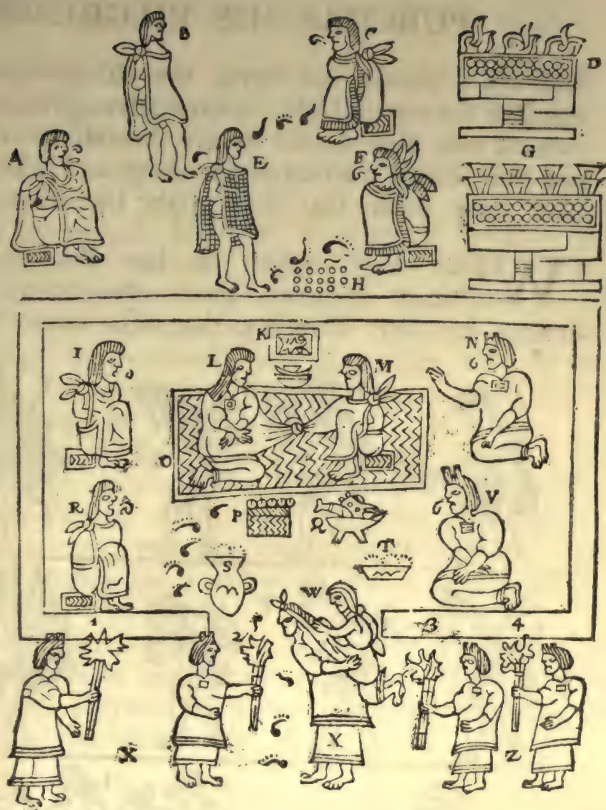 B
D
A
E
F
G
H
I
K
L
M
N
O
P
Q
R
S
T
V
W
1
2
3 4
X
Z